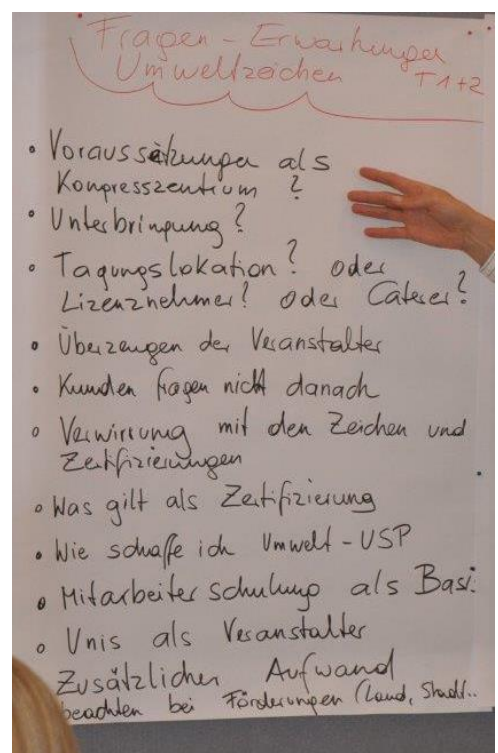 Fragen - Erwartungen
Umweltzeichen T1+2
• Voraussetzungen als
Kongresszentrum ?
• Unterbringung ?
• Tagungslokation ? oder
Lizenznehmer ? oder Caterer ?
• Überzeugen der Veranstalter
• Kunden fragen nicht danach
• Verwirrung mit den Zeichen und
Zertifizierungen
• Was gilt als Zertifizierung
• Wie schaffe ich Umwelt - USP
• Mitarbeiterschulung als Basi
• Unis als Veranstalter
Zusätzlicher Aufwand
beachten bei Förderungen (Land, Stadt..